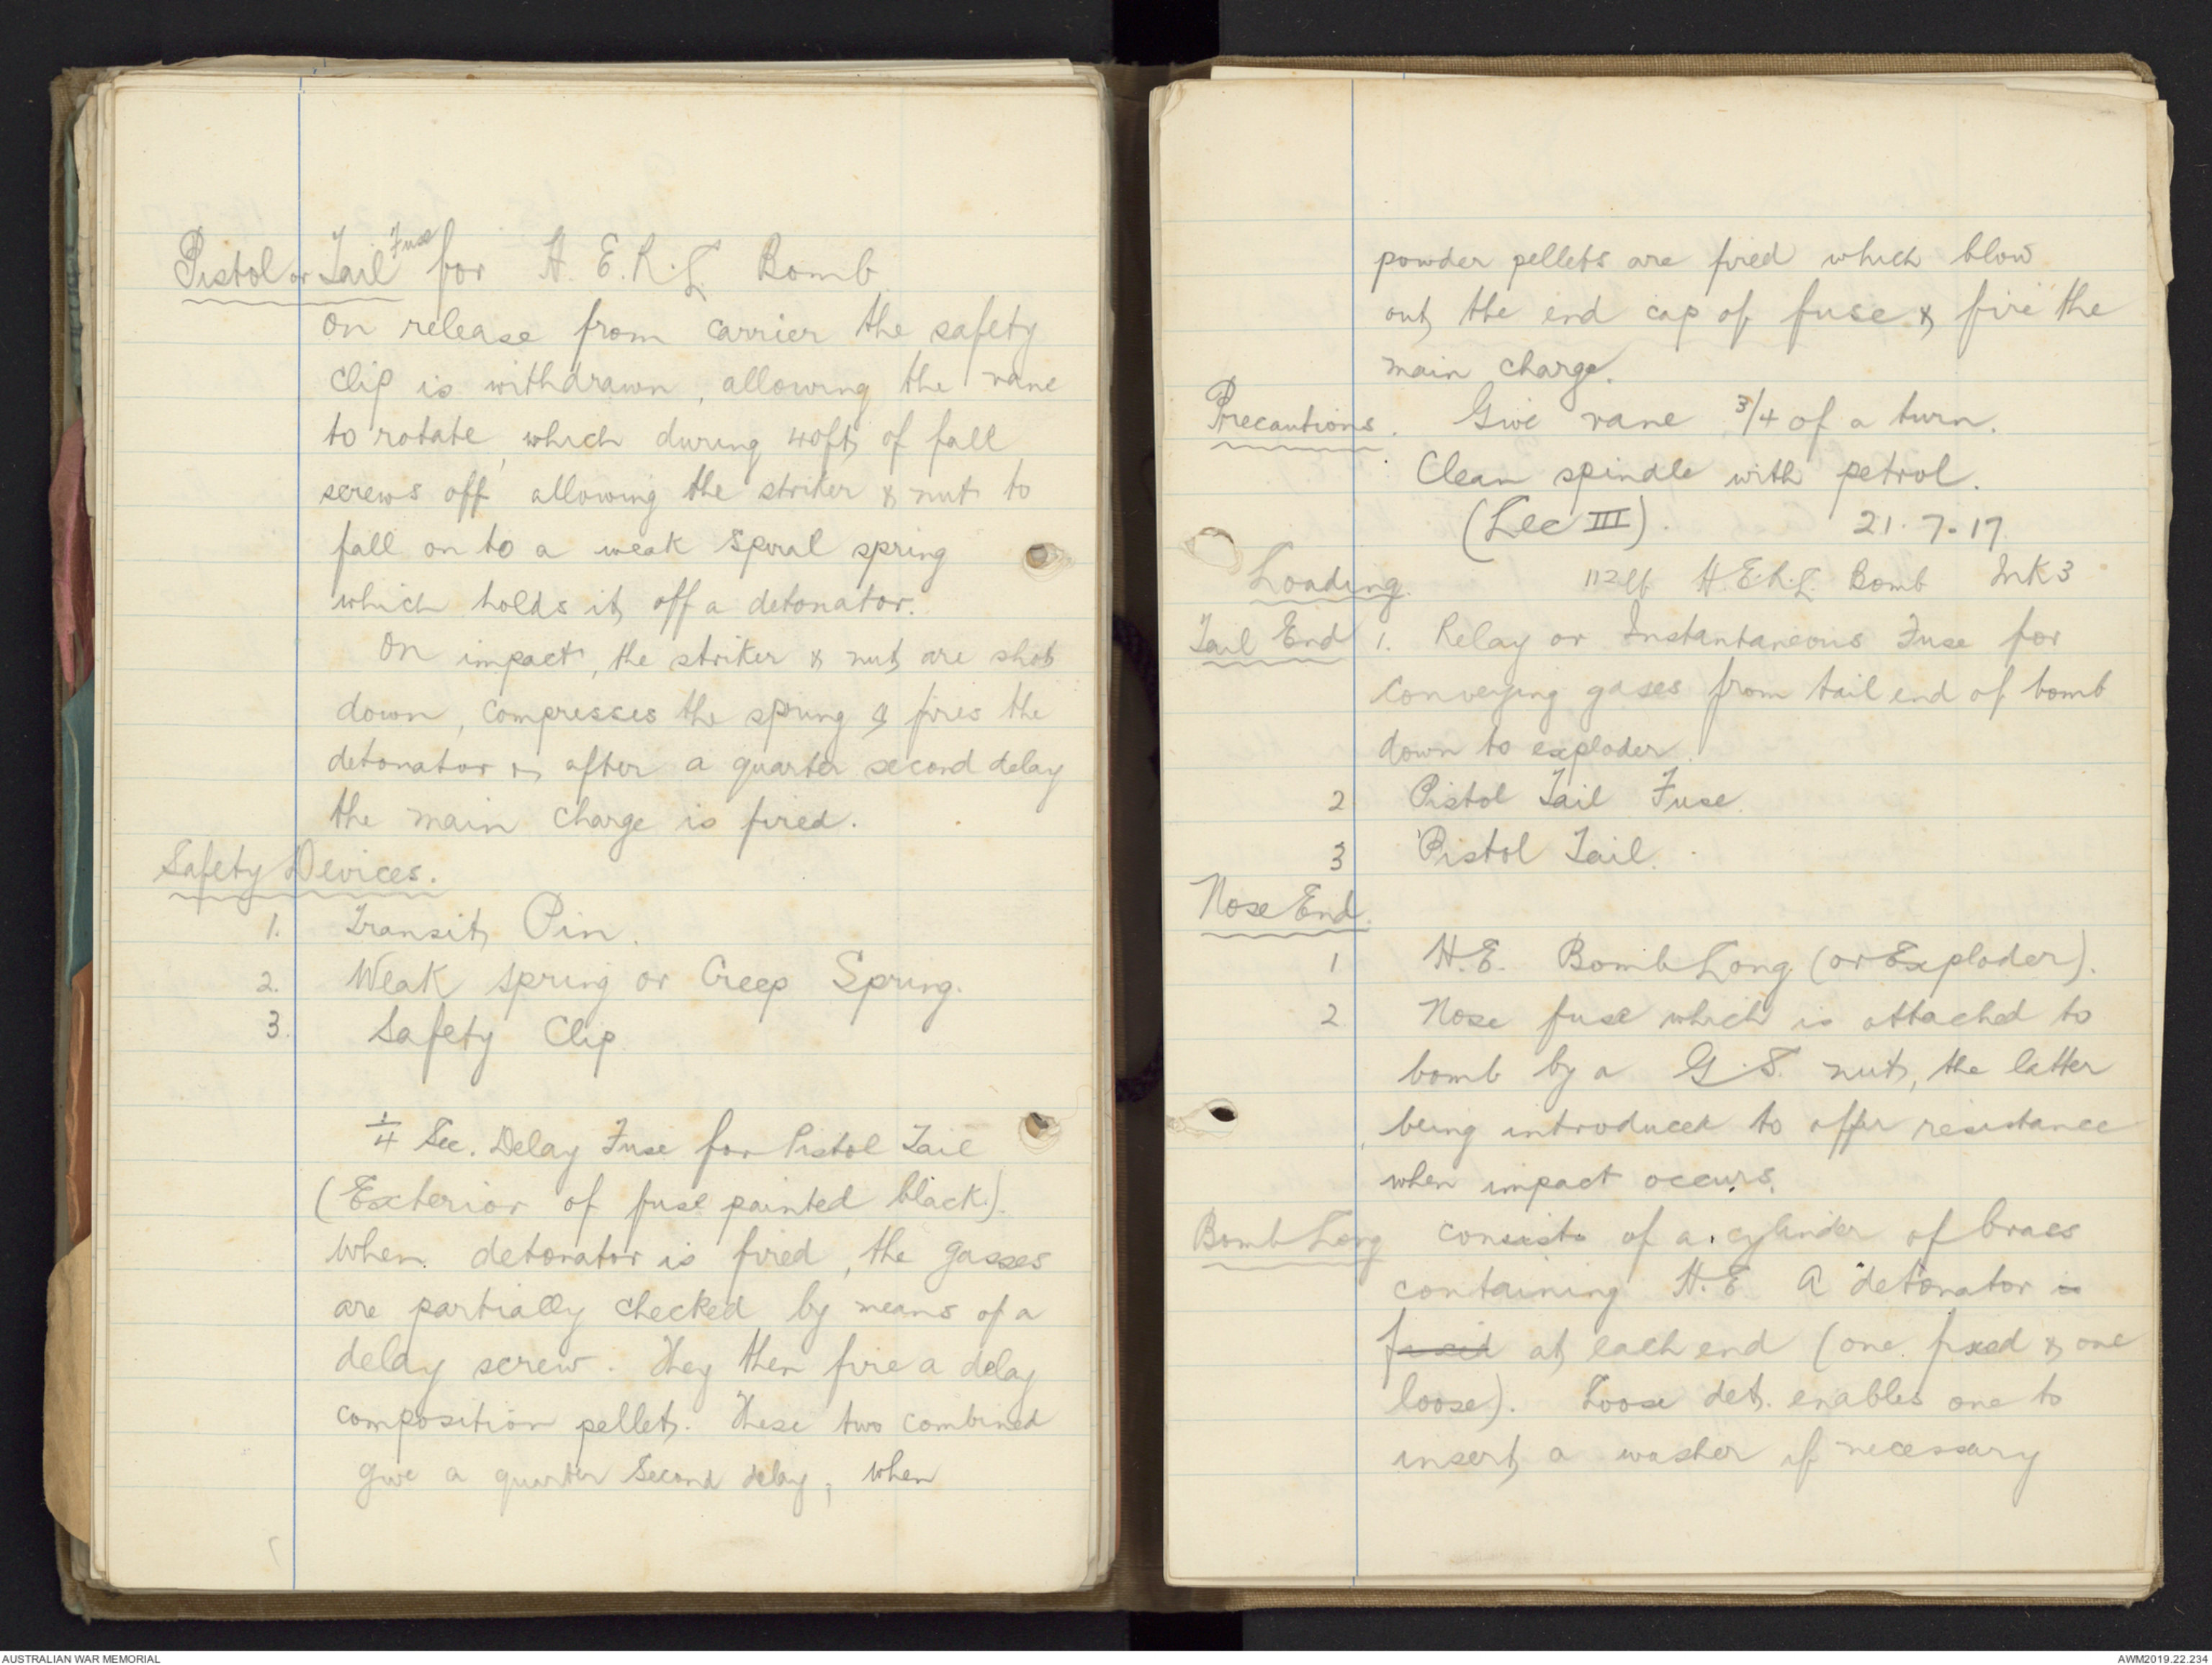 Pistol or Tail Fuse for H.E.R.L Bomb.
On release from carrier the safety
clip is withdrawn, allowing the vane
to rotate, which during 40ft of fall
screws off allowing the striker & nut to
fall on to a weak spiral spring
which holds it off a detonator.
On impact, the striker & nut are shot
down, compresses the spring & fires the
detonator & after a quarter second delay
the main charge is fired.
Safety Devices.
1. Transit Pin.
2. Weak spring or Creep Spring.
3. Safety Clip
1/4 Sec. Delay Fuse for Pistol Tail
(Exterior of fuse painted black).
When detonator is fired, the gasses
are partially checked by means of a
delay screw. They then fire a delay
composition pellet. These two combined
give a quarter second delay, when
powder pellets are fired which blow
out the end cap of fuse & fire the
main charge.
Precautions. Give vane 3/4 of a turn.
Clean spindle with petrol.
(Lec III). 21.7.17
Loading. 112lb H.E.R.L. Bomb Mk3
Tail End 1. Relay or Instantaneous Fuse for
Conveying gases from tail end of bomb
down to exploder.
2 Pistol Tail Fuse.
3 Pistol Tail.
Nose End.
1 H.E. Bomb Long (or Exploder).
2 Nose fuse which is attached to
bomb by a G.S. nut, the latter
being introduced to offer resistance
when impact occurs.
Bomb Long consists of a cylinder of brass
containing H.E. A detonator is
fixed at each end (one fixed & one
loose). Loose det. enables one to
insert a washer if necessary
AUSTRALIAN WAR MEMORIAL
AWM2019.22.234